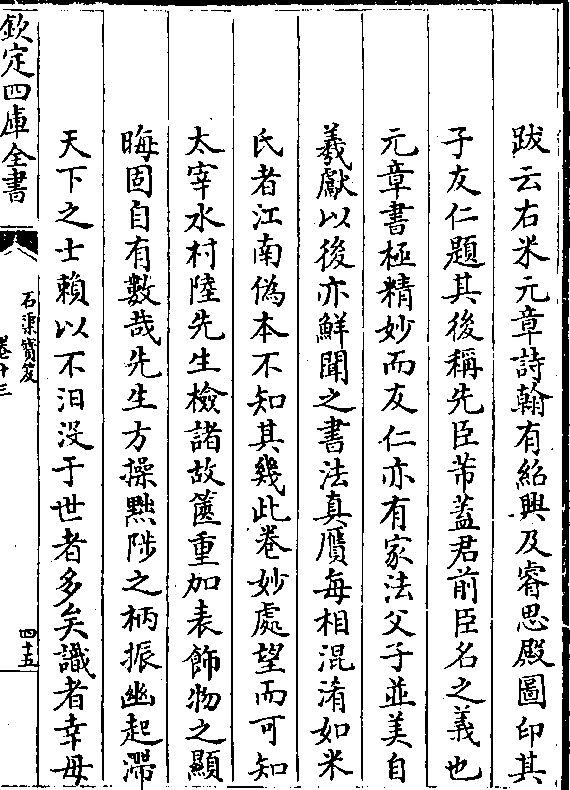 跋云右米元章詩翰有紹興及睿思殿圖印其
子友仁題其後稱先臣芾蓋君前臣名之義也
元章書極精妙而友仁亦有家法父子並美自
羲獻以後亦鮮聞之書法真贗每相混淆如米
氏者江南偽本不知其幾此卷妙處望而可知
太宰水村陸先生檢諸故篋重加表飾物之顯
晦固自有數哉先生方操黜陟之柄振幽起滯
天下之士賴以不汨没于世者多矣識者幸毋
欽定四庫全書
石渠寶笈
卷十三
四十五